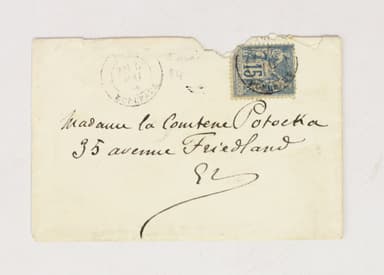 15
Madame la Comtesse Potocka
35 avenue Friedland